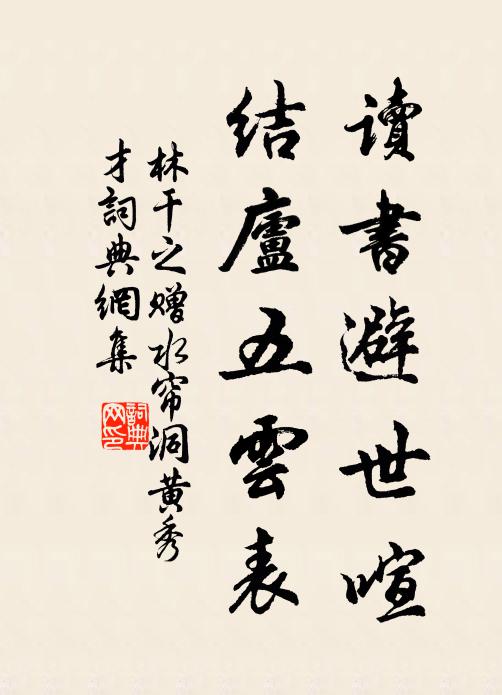 讀書避世喧
結廬五雲表
林干之贈水帘洞黄秀
才詞典網集
詞典
网印